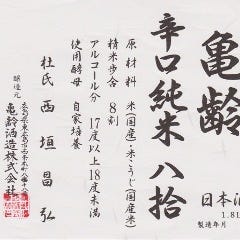 亀齢
辛口純米 八拾
原材料 米(国産)・米こうじ(国産米)
精米歩合 8割
アルコール分 17度以上18度未満
使用酵母 自家培養
杜氏 西垣昌弘
醸造元
亀齢酒造株式会社
日本酒
1.8
製造年月